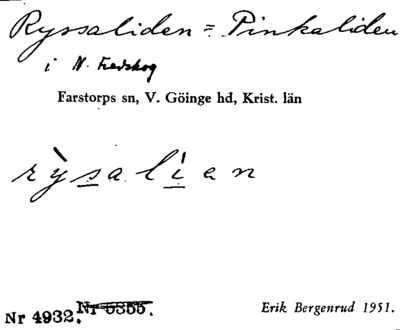 Ryssaliden = Pinkaliden
i N. Fredskog
Farstorps sn, V. Göinge hd, Krist. län
rỳsalían
Nr 4932. Nr 5355.
Erik Bergenrud 1951.